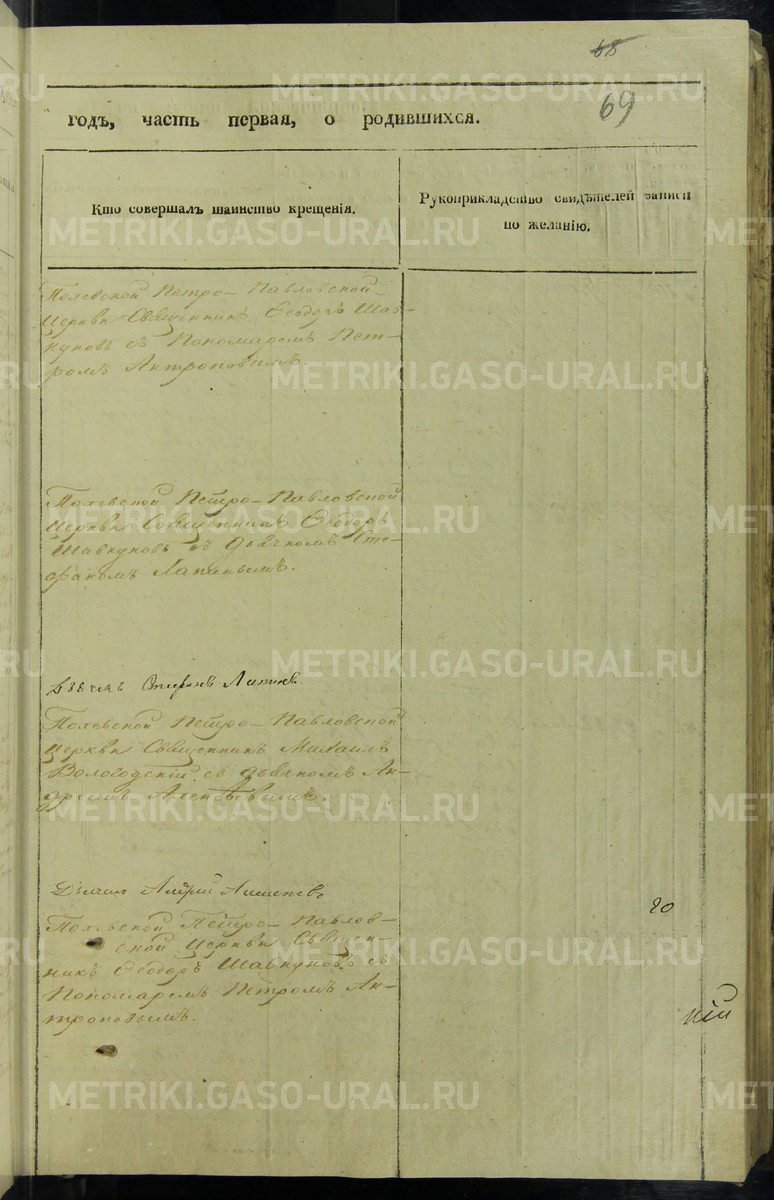 58
69
годъ, часть первая, о родившихся.
Кто совершалъ таинство крещенія.
Рукоприкладство свидѣтелей записи
по желанію.
Полевской Петро-Павловской
Церкви Священникъ Ѳеодоръ Шав-
куновъ съ Пономаремъ Пет-
ромъ Антроповымъ.
Полевской Петро-Павловской
Церкви Священникъ Ѳеодоръ
Шавкуновъ съ Дьячкомъ Сте-
фаномъ Лапинымъ.
Дьячекъ Стефанъ Лапинъ
Полевской Петро-Павловской
Церкви Священникъ Михаилъ
Вологодскій съ дьячкомъ Ан-
дреемъ
Андрей
Полевской Петро-Павлов-
ской Церкви Священ-
никъ Ѳеодоръ Шавкуновъ съ
Пономаремъ Петромъ Ан-
троповымъ.
20
METRIKI.GASO-URAL.RU